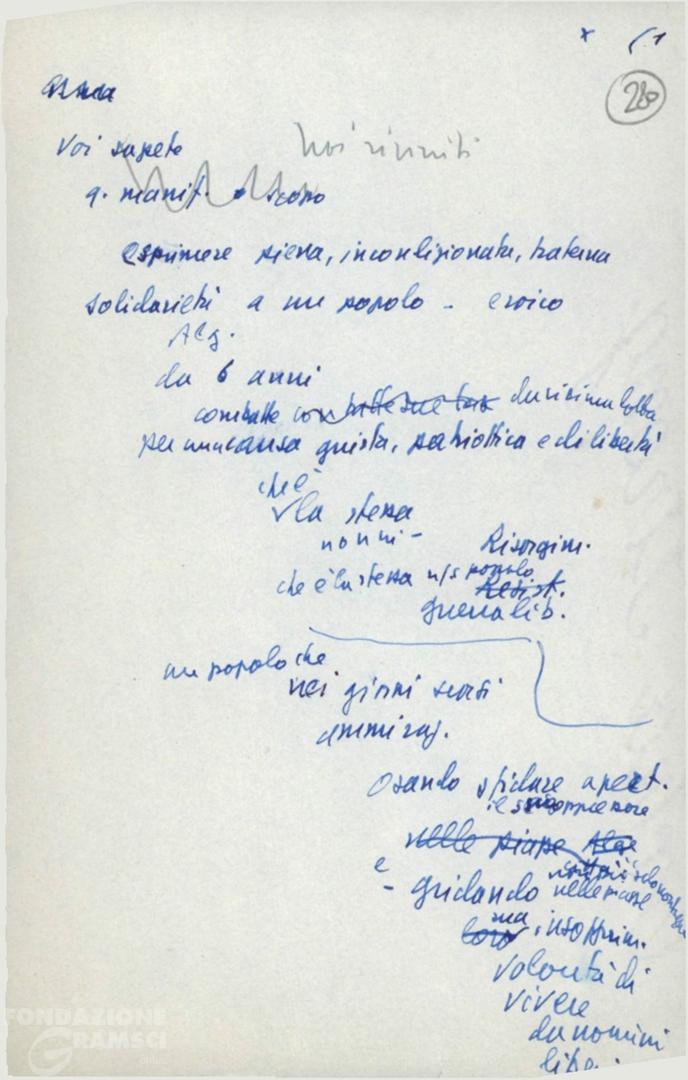 ( 1
280
Voi sapete
noi riuniti
q. manif. scopo
esprimere piena, incondizionata, fraterna
solidarietà a un popolo - eroico
Alg.
da 6 anni
combatte con durissima lotta
per una causa giusta, patriottica e di libertà
che è
la stessa
nonni - Risorgim.
che è la stessa n/s popolo
Resist.
guerra lib.
un popolo che
nei giorni scorsi
ammiraz.
Osando sfidare apert.
il suo oppressore
nelle piazze Alge
e
- gridando nelle piazze
loro sua insopprim.
volontà di
vivere
da uomini
liberi
FONDAZIONE
GRAMSCI